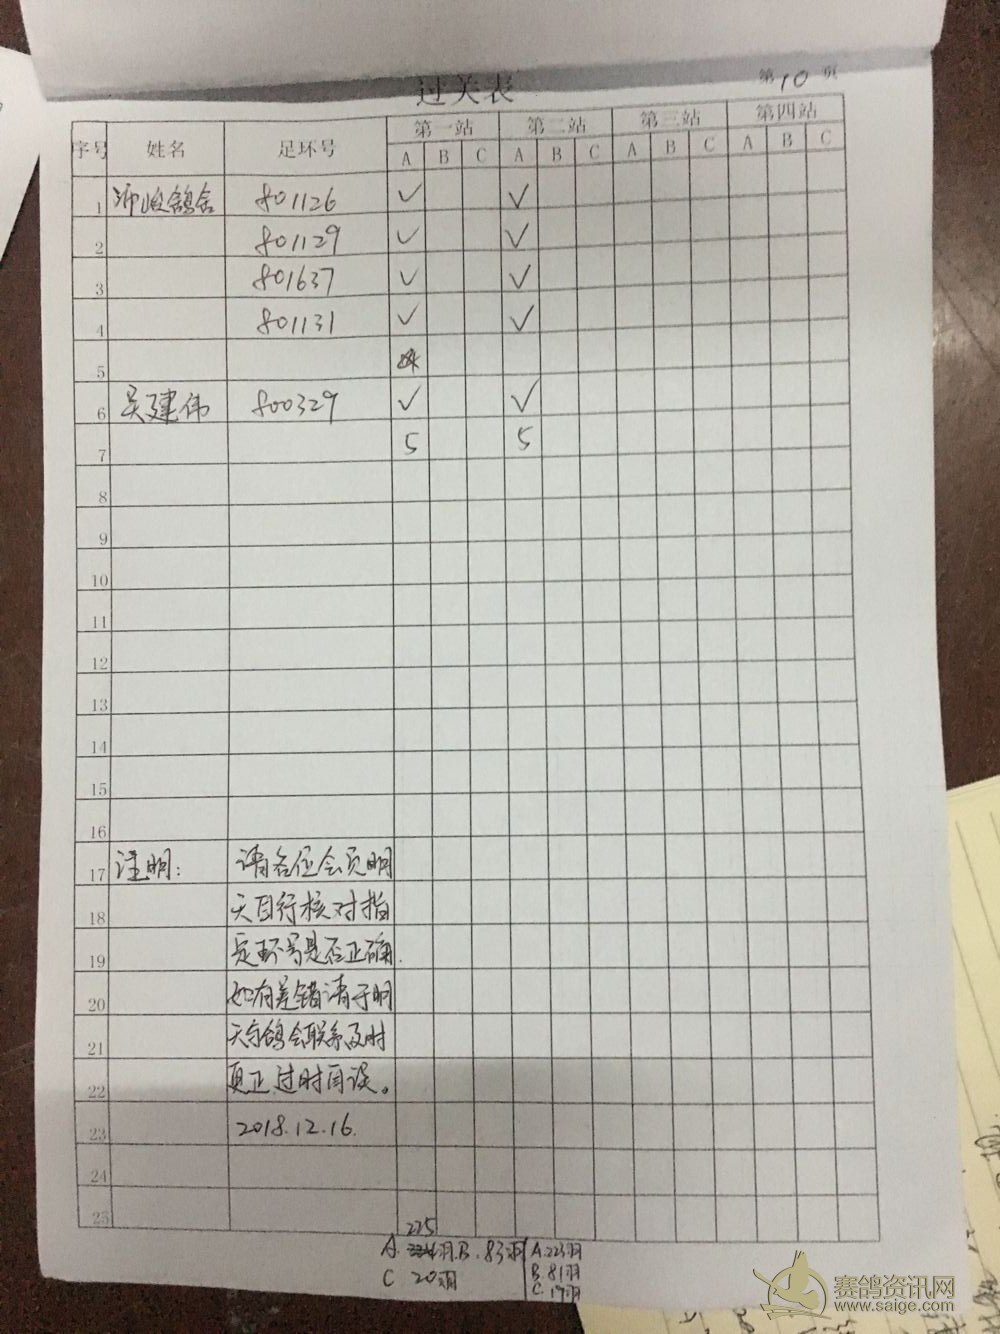 第10页
过关表
序号 姓名 足环号 第一站 第二站 第三站 第四站
A B C A B C A B C A B C
1 沛峻鸽舍 801126 ✓ ✓
2 801129 ✓ ✓
3 801637 ✓ ✓
4 801131 ✓ ✓
5
6 吴建伟 800329 ✓ ✓
7 5 5
8
9
10
11
12
13
14
15
16
17 注明: 请各位会员明
18 天自行核对指
19 定环号是否正确.
20 如有差错请于明
21 天与鸽会联系及时
22 更正,过时自误。
23 2018.12.16.
24
25
225
A. 羽.B.83羽 A.223羽
C 20羽 B.81羽
C.19羽
赛鸽资讯网
www.saige.com